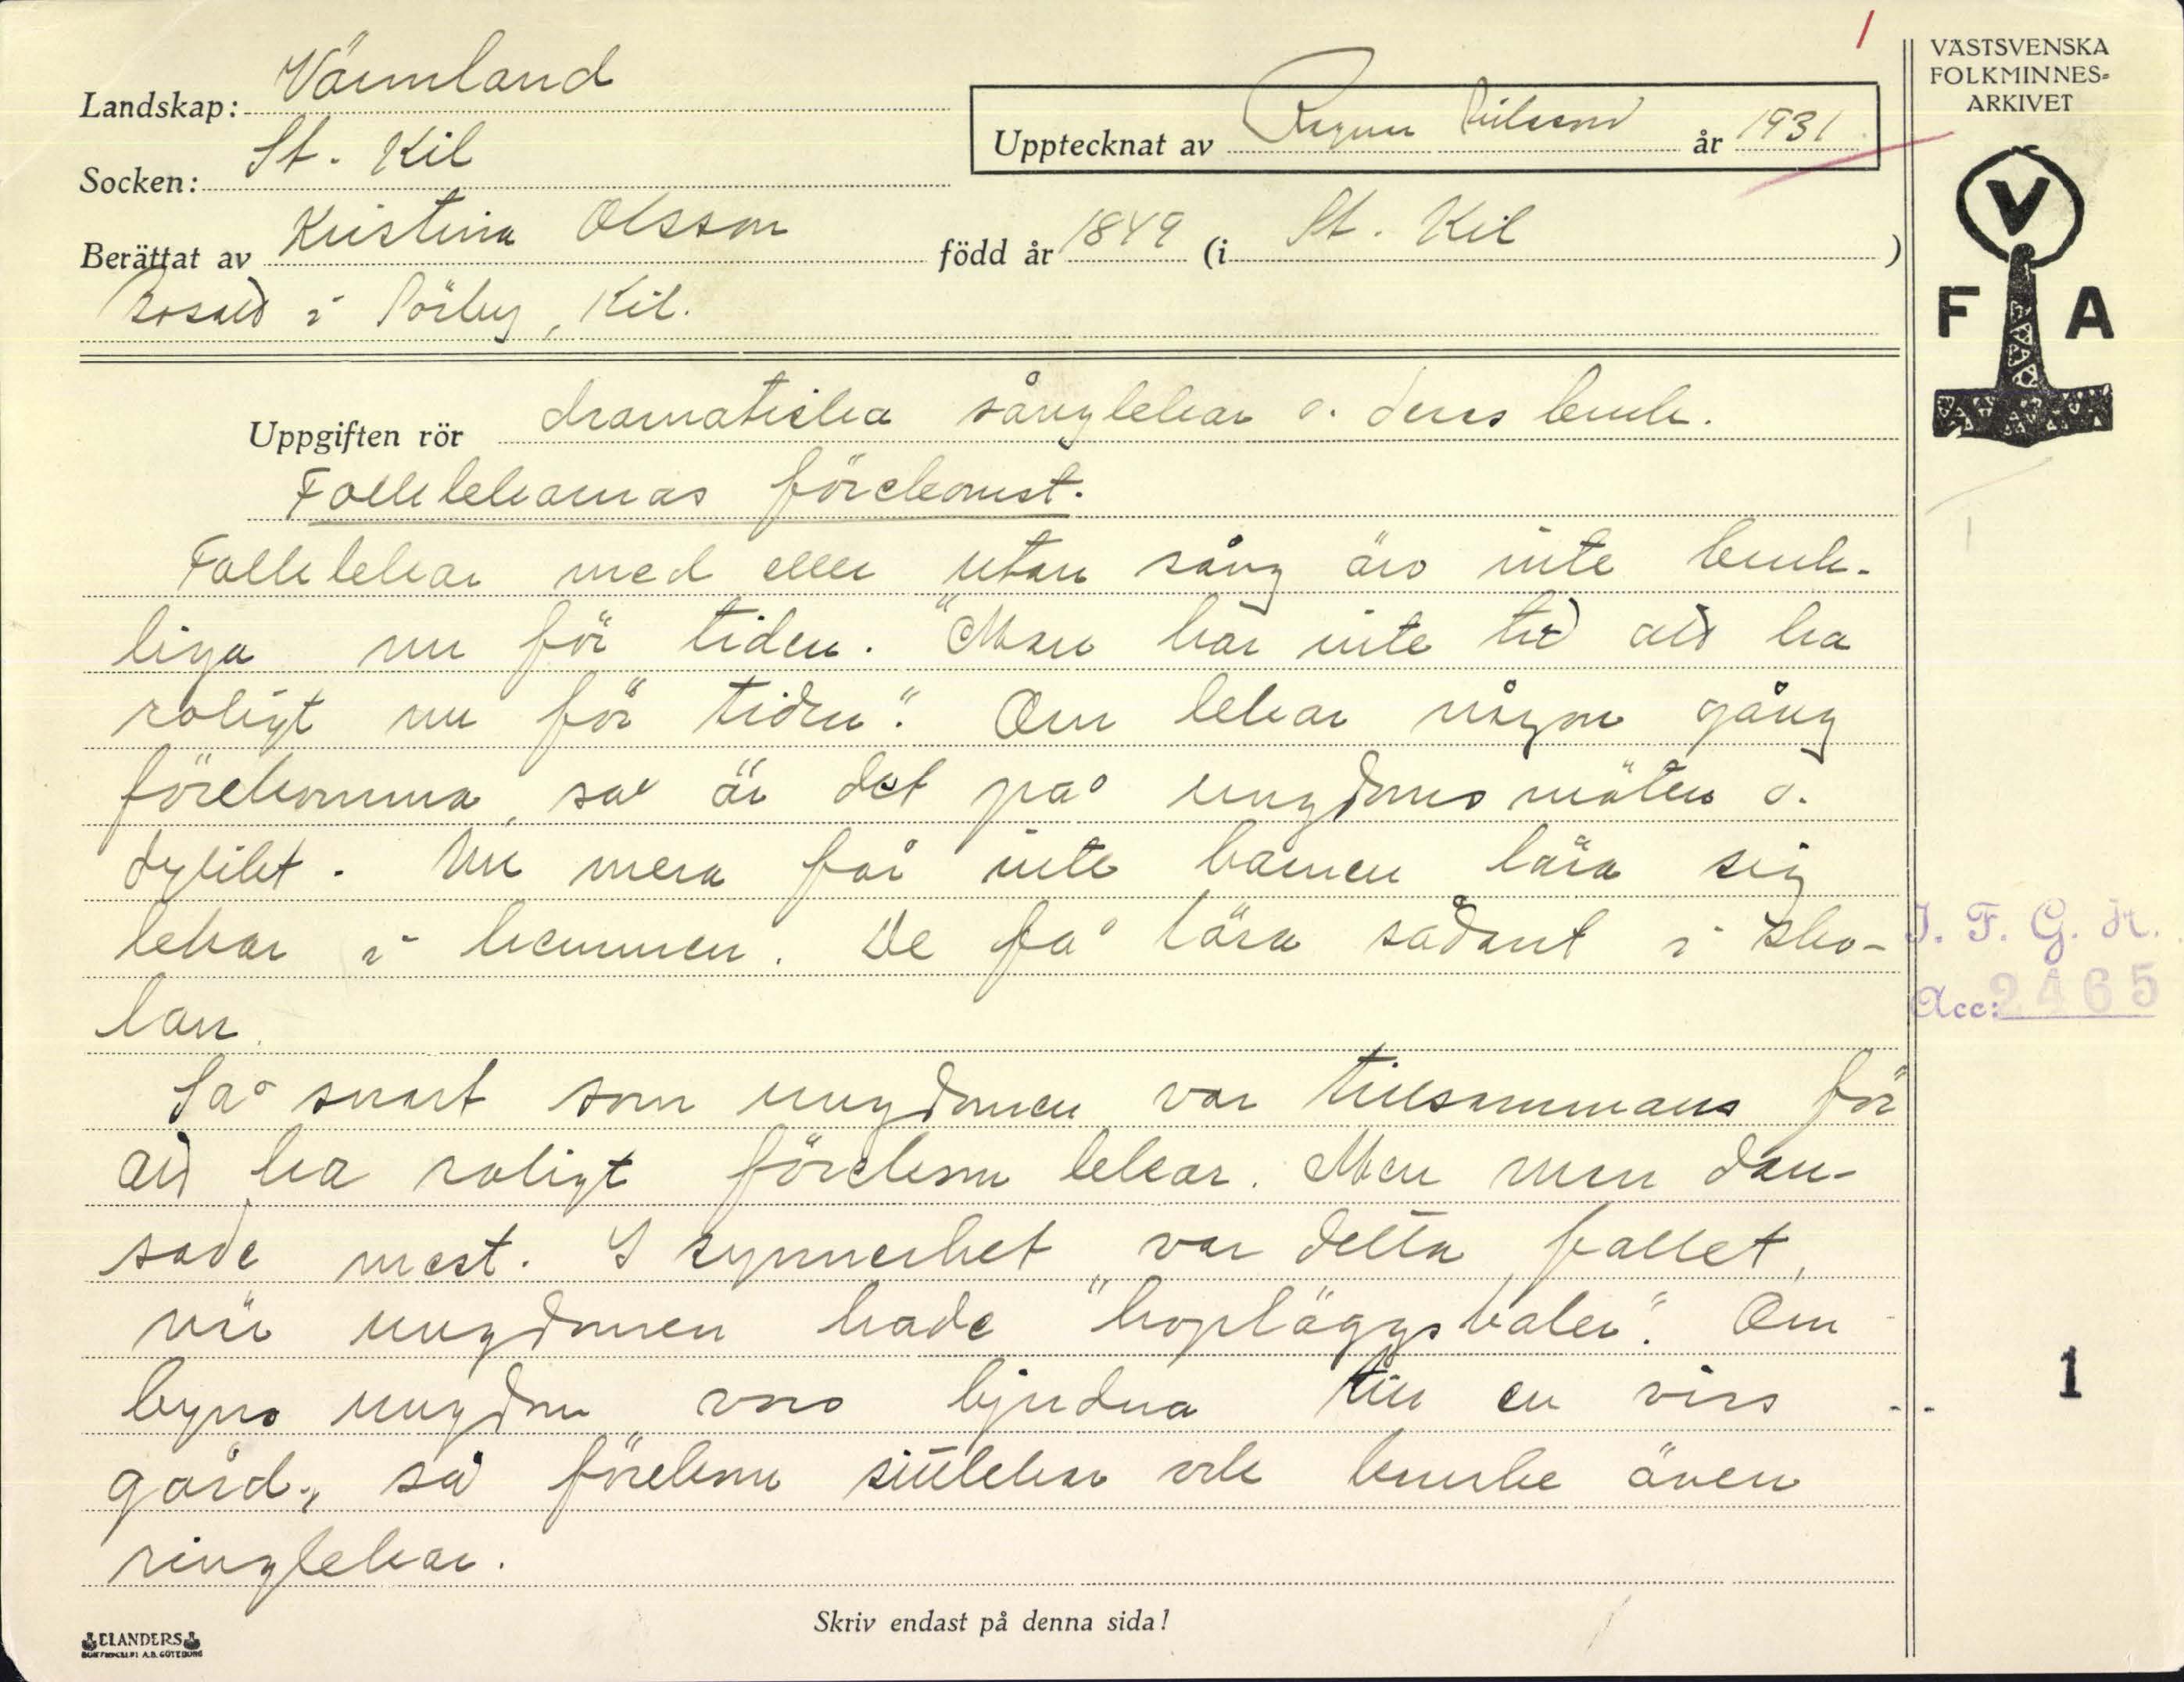 1
VÄSTSVENSKA
FOLKMINNES-
ARKIVET
Landskap: Värmland
Upptecknat av Ragnar Nilsson år 1931
Socken: St. Kil
Berättat av Kristina Olsson född år 1849 (i St. Kil)
Bosatt i Sörby, Kil.
V
F A
Uppgiften rör dramatiska sånglekar o. deras bruk.
Folklekarnas förekomst.
Folklekar med eller utan sång äro inte bruk-
liga nu för tiden. "Man har inte tid att ha
roligt nu för tiden". Om lekar någon gång
förekomma, så är det på ungdomsmöten o.
dylikt. Nu mera får inte barnen lära sig
lekar i hemmen. De få lära sådant i sko-
lan.
Så snart som ungdomen var tillsammans för
att ha roligt förekom lekar. Men man dan-
sade mest. I synnerhet var detta fallet,
när ungdomen hade "hopläggsbaler". Om
byns ungdom voro bjudna till en viss
gård, så förekom sittlekar och kanske även
ringlekar.
I. F. G. H.
Acc: 2465
1
Skriv endast på denna sida!
ELANDERS